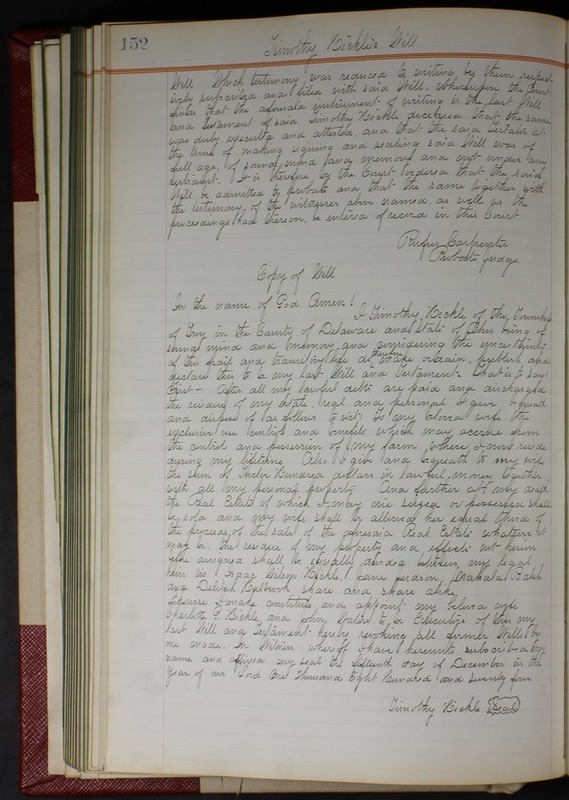 152
Timothy Hickle's Will
Will Which testimony was reduced to writing by them respect-
ively subscribed and filed with said Will. Whereupon the Court
finds that the aforesaid instrument of writing is the last Will
and Testament of said Timothy Hickle deceased that the same
was duly executed and attested, and that the said Testator at
the time of making signing and sealing said Will was of
full age, of sound mind and memory and not under any
restraint. It is therefore by the Court ordered that the said
Will be admitted to probate and that the same together with
the testimony of the witnesses above named, as well as the
proceedings had thereon, be entered of record in this Court
Rufus Carpenter
Probate Judge
Copy of Will
In the name of God Amen!
I Timothy Hickle of the Township
of Troy in the County of Delaware and State of Ohio being of
sound mind and memory and considering the uncertainty
of this frail and transitory life do therefore make ordain, publish and
declare this to be my last Will and Testament: That is to say:
First – After all my lawful debts are paid and discharged
the residue of my estate, real and personal I give bequeath
and dispose of as follows to wit: To my beloved wife the
exclusive use benefits and which may accrue from
the control and possession of my farm where I now reside
during my lifetime Also I give and bequeath to my wife
the sum of Hundred dollars in lawful money together
with all my personal property And further at my death
the Real Estate of which I may die seized or possessed shall
be sold and my wife shall be allowed her equal third of
the proceeds of the sale of the aforesaid Real Estate whatever it
may be. The residue of my property and effects not herein
assigned shall be equally divided between my legal
heirs Isaac Wilson Hickle, Jane
and Delilah share and share alike,
Likewise I make constitute and appoint my beloved wife
Charlotte Hickle, and John to be Executors of this my
last Will and Testament hereby revoking all former Wills by
me made. In Witness whereof I have hereunto subscribed my
name and affixed my seal the fifteenth day of December in the
Year of our Lord One Thousand Eight Hundred and seventy four
Timothy Hickle Seal